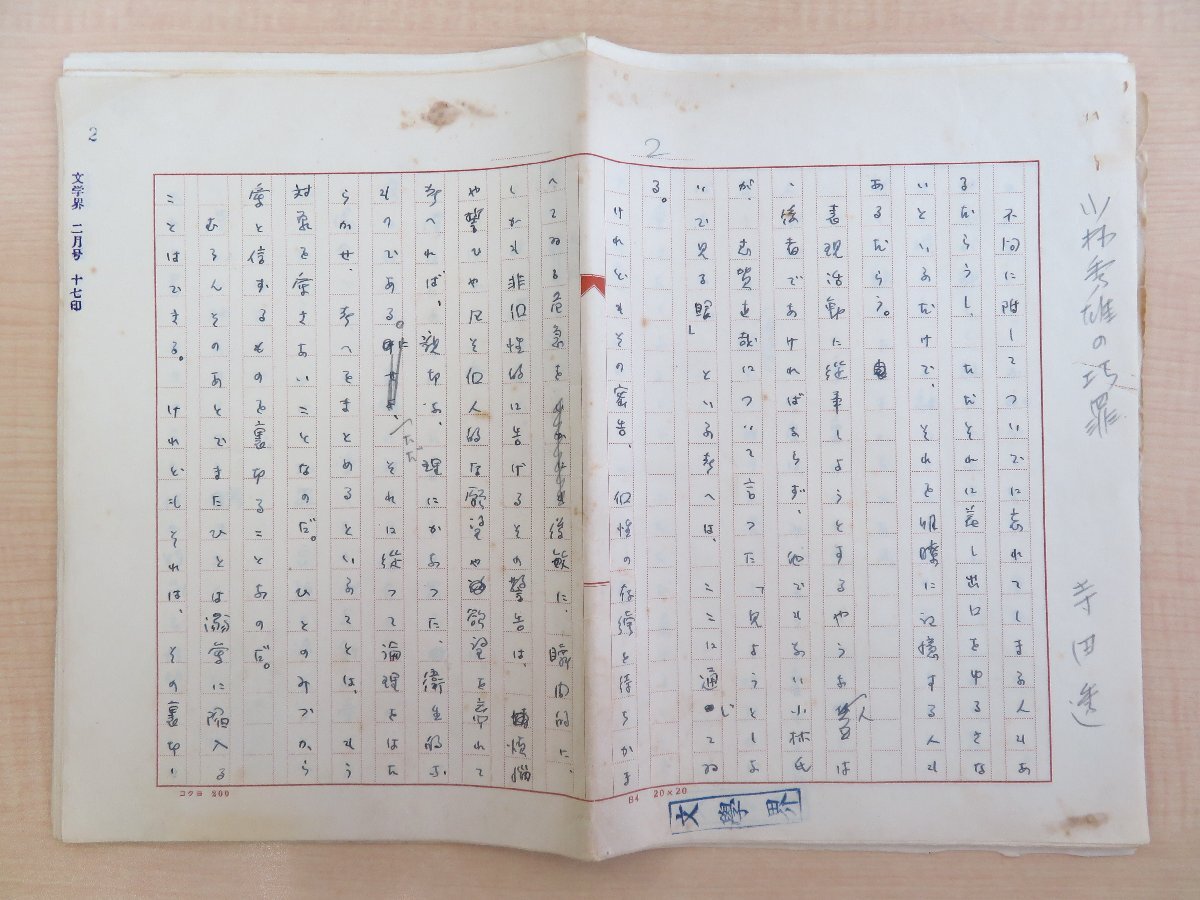 小林秀雄の功罪 寺田透
2
不問に附してついでに忘れてしまふ人もあ
るだらうし、ただそれに差し出口をゆるさな
いといふだけで、それを明瞭に記憶する人も
あるだらう。
表現活動に従事しようとするやうな人は
、後者でなければならず、他でもない小林氏
が、志賀直哉について言つた「見ようとしな
いで見る眼」といふ考へは、ここに通じてゐ
る。
けれどもその密告、個性の存続を待ちかま
へてゐる危急を 後敏に、瞬間的に、
しかも非個性的に告げるその警告は、煩悩
や誓ひや凡そ個人的な願望や欲望を離れて
考へれば、親切な、理にかなつた、衛生的な
ものである。ただ、それに従つて論理をはた
らかせ、考へをまとめるといふことは、もう
対象を愛さないことなのだ。ひとのみづから
愛と信ずるものを裏切ることなのだ。
むろんそのあとでまたひとは溺愛に陥入る
ことはできる。けれどもそれは、その裏切り
コクヨ 200
B4 20×20
文學界
2
文学界 二月号 十七印